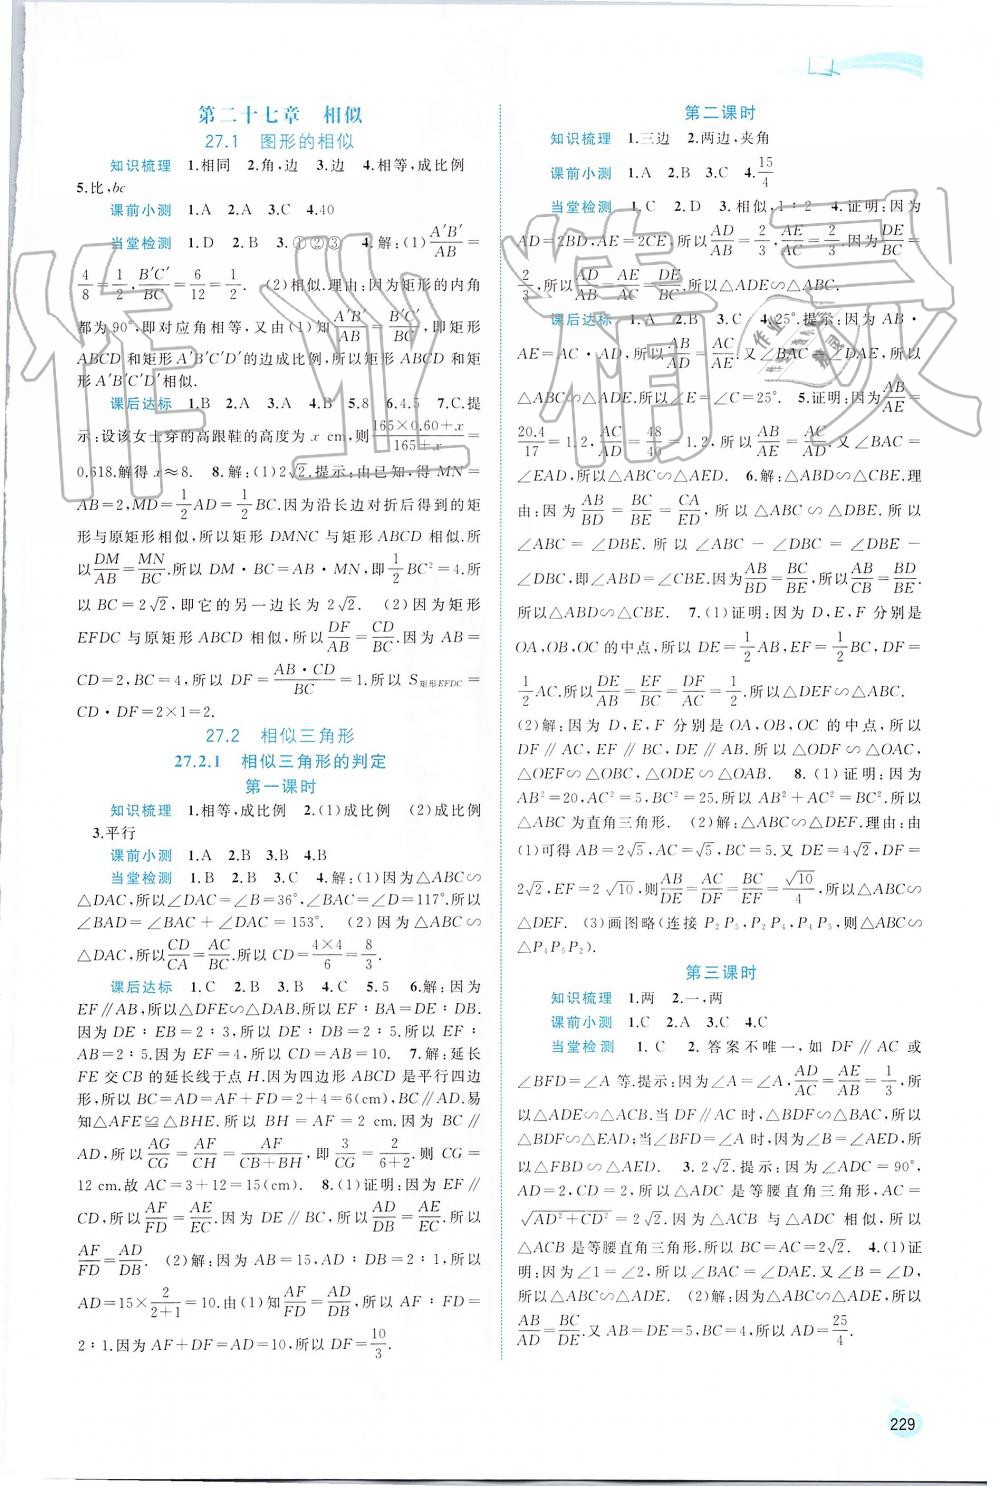 第二十七章　相似
27.1　图形的相似
知识梳理　1.相同　2.角,边　3.边　4.相等,成比例
5.比,bc
课前小测　1.A　2.A　3.C　4.40
当堂检测　1.D　2.B　3.①②③　4.解:(1)A′B′/AB=
4/8=1/2,B′C′/BC=6/12=1/2.　(2)相似.理由:因为矩形的内角
都为90°,即对应角相等,又由(1)知A′B′/AB=B′C′/BC,即矩形
ABCD和矩形A′B′C′D′的边成比例,所以矩形ABCD和矩
形A′B′C′D′相似.
课后达标　1.B　2.A　3.A　4.B　5.8　6.4.5　7.C.提
示:设该女士穿的高跟鞋的高度为x cm,则(165×0.60+x)/(165+x)=
0.618.解得x≈8.　8.解:(1)2√2.提示:由已知,得MN=
AB=2,MD=1/2AD=1/2BC.因为沿长边对折后得到的矩
形与原矩形相似,所以矩形DMNC与矩形ABCD相似.所
以DM/AB=MN/BC.所以DM·BC=AB·MN,即1/2BC²=4.所
以BC=2√2,即它的另一边长为2√2.　(2)因为矩形
EFDC与原矩形ABCD相似,所以DF/AB=CD/BC.因为AB=
CD=2,BC=4,所以DF=AB·CD/BC=1.所以S矩形EFDC=
CD·DF=2×1=2.
27.2　相似三角形
27.2.1　相似三角形的判定
第一课时
知识梳理　1.相等,成比例　2.(1)成比例　(2)成比例
3.平行
课前小测　1.A　2.B　3.B　4.B
当堂检测　1.B　2.B　3.C　4.解:(1)因为△ABC∽
△DAC,所以∠DAC=∠B=36°,∠BAC=∠D=117°.所以
∠BAD=∠BAC+∠DAC=153°.　(2)因为△ABC∽
△DAC,所以CD/CA=AC/BC.所以CD=4×4/6=8/3.
课后达标　1.C　2.B　3.B　4.C　5.5　6.解:因为
EF∥AB,所以△DFE∽△DAB.所以EF∶BA=DE∶DB.
因为DE∶EB=2∶3,所以DE∶DB=2∶5.所以EF∶
AB=2∶5.因为EF=4,所以CD=AB=10.　7.解:延长
FE交CB的延长线于点H.因为四边形ABCD是平行四边
形,所以BC=AD=AF+FD=2+4=6(cm),BC∥AD.易
知△AFE≌△BHE.所以BH=AF=2 cm.因为BC∥
AD,所以AG/CG=AF/CH=AF/(CB+BH),即3/CG=2/(6+2).则CG=
12 cm.故AC=3+12=15(cm).　8.(1)证明:因为EF∥
CD,所以AF/FD=AE/EC.因为DE∥BC,所以AD/DB=AE/EC.所以
AF/FD=AD/DB.　(2)解:因为AB=15,AD∶DB=2∶1,所以
AD=15×2/(2+1)=10.由(1)知AF/FD=AD/DB,所以AF∶FD=
2∶1.因为AF+DF=AD=10,所以DF=10/3.
第二课时
知识梳理　1.三边　2.两边,夹角
课前小测　1.A　2.B　3.C　4.15/4
当堂检测　1.C　2.D　3.相似,1∶2　4.证明:因为
AD=2BD,AE=2CE,所以AD/AB=2/3,AE/AC=2/3.因为DE/BC=
2/3,所以AD/AB=AE/AC=DE/BC.所以△ADE∽△ABC.
课后达标　1.A　2.B　3.C　4.25°.提示:因为AB·
AE=AC·AD,所以AB/AD=AC/AE.又∠BAC=∠DAE,所以
△ABC∽△ADE.所以∠E=∠C=25°.　5.证明:因为AB/AE=
20.4/17=1.2,AC/AD=48/40=1.2,所以AB/AE=AC/AD,又∠BAC=
∠EAD,所以△ABC∽△AED.　6.解:△ABD∽△CBE.理
由:因为AB/BD=BC/BE=CA/ED,所以△ABC∽△DBE.所以
∠ABC=∠DBE.所以∠ABC-∠DBC=∠DBE-
∠DBC,即∠ABD=∠CBE.因为AB/BD=BC/BE,所以AB/CB=BD/BE.
所以△ABD∽△CBE.　7.(1)证明:因为D,E,F分别是
OA,OB,OC的中点,所以DE=1/2AB,EF=1/2BC,DF=
1/2AC.所以DE/AB=EF/BC=DF/AC=1/2.所以△DEF∽△ABC.
(2)解:因为D,E,F分别是OA,OB,OC的中点,所以
DF∥AC,EF∥BC,DE∥AB.所以△ODF∽△OAC,
△OEF∽△OBC,△ODE∽△OAB.　8.(1)证明:因为
AB²=20,AC²=5,BC²=25.所以AB²+AC²=BC².所以
△ABC为直角三角形.　(2)解:△ABC∽△DEF.理由:由
(1)可得AB=2√5,AC=√5,BC=5.又DE=4√2,DF=
2√2,EF=2√10,则AB/DE=AC/DF=BC/EF=√10/4,所以△ABC∽
△DEF.　(3)画图略(连接P₂P₅,P₂P₄,P₄P₅,则△ABC∽
△P₄P₅P₂).
第三课时
知识梳理　1.两　2.一,两
课前小测　1.C　2.A　3.C　4.C
当堂检测　1.C　2.答案不唯一,如DF∥AC或
∠BFD=∠A等.提示:因为∠A=∠A,AD/AC=AE/AB=1/3,所
以△ADE∽△ACB.当DF∥AC时,△BDF∽△BAC,所以
△BDF∽△EAD;当∠BFD=∠A时,因为∠B=∠AED,所
以△FBD∽△AED.　3.2√2.提示:因为∠ADC=90°,
AD=2,CD=2,所以△ADC是等腰直角三角形,AC=
√(AD²+CD²)=2√2.因为△ACB与△ADC相似,所以
△ACB是等腰直角三角形.所以BC=AC=2√2.　4.(1)证
明:因为∠1=∠2,所以∠BAC=∠DAE.又∠B=∠D,
所以△ABC∽△ADE.　(2)解:因为△ABC∽△ADE,所以
AB/AD=BC/DE.又AB=DE=5,BC=4,所以AD=25/4.
229
作业精灵